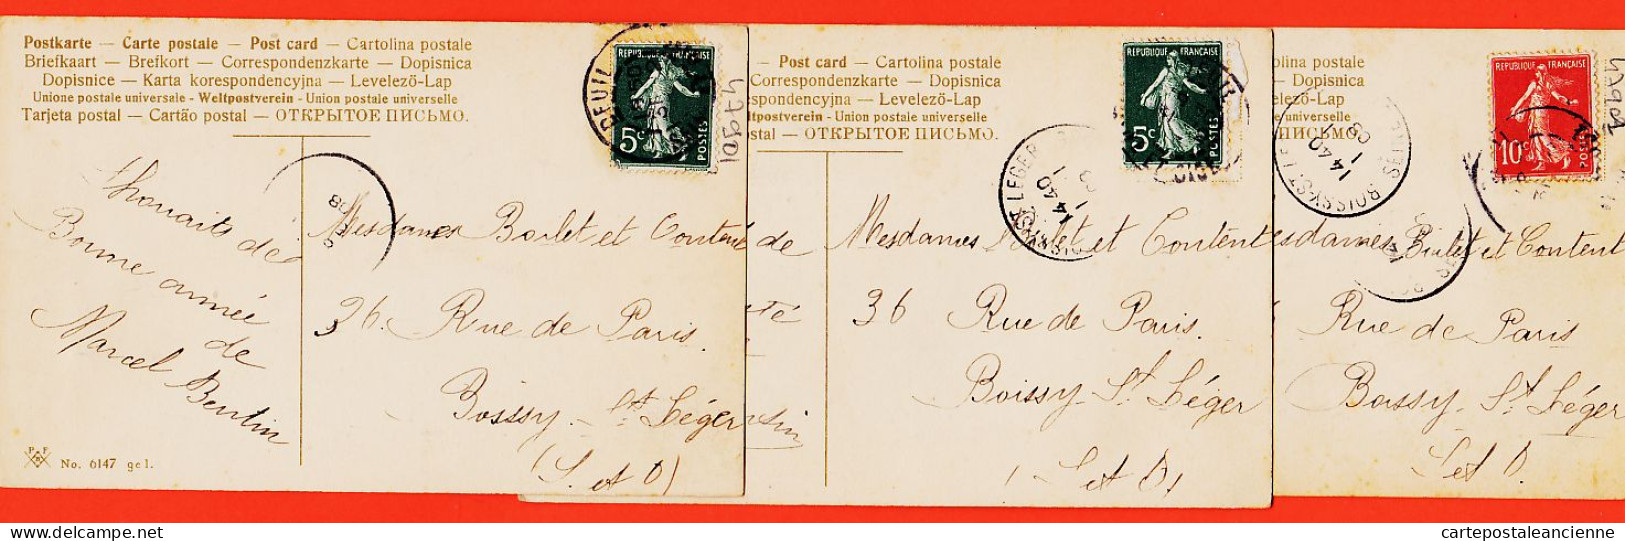 Postkarte — Carte postale — Post card — Cartolina postale
Briefkaart — Brefkort — Correspondenzkarte — Dopisnica
Dopisnice — Karta korespondencyjna — Levelező-Lap
Unione postale universale - Weltpostverein - Union postale universelle
Tarjeta postal — Cartão postal — ОТКРЫТОЕ ПИСЬМО.
REPUBLIQUE FRANÇAISE
5c
POSTES
47901
Souhaits de
Bonne année
de
Marcel Bertin
Mesdames Boilet et Content
36. Rue de Paris.
Boissy - St Léger
(S. et O)
No. 6147 gel.
— Post card — Cartolina postale
Correspondenzkarte — Dopisnica
spondencyjna — Levelező-Lap
ltpostverein - Union postale universelle
stal — ОТКРЫТОЕ ПИСЬМО.
REPUBLIQUE FRANÇAISE
5c
POSTES
LEGER
14 40
de
té
Mesdames et Content
36 Rue de Paris.
Boissy. St Léger
(S et O)
lina postale
— Dopisnica
elező-Lap
universelle
ПИСЬМО.
REPUBLIQUE FRANÇAISE
10c
POSTES
BOISSY-ST-LEGER
14 40
sdames et Content
Rue de Paris
Boissy. St Léger
S. et O.
cartepostaleancienne